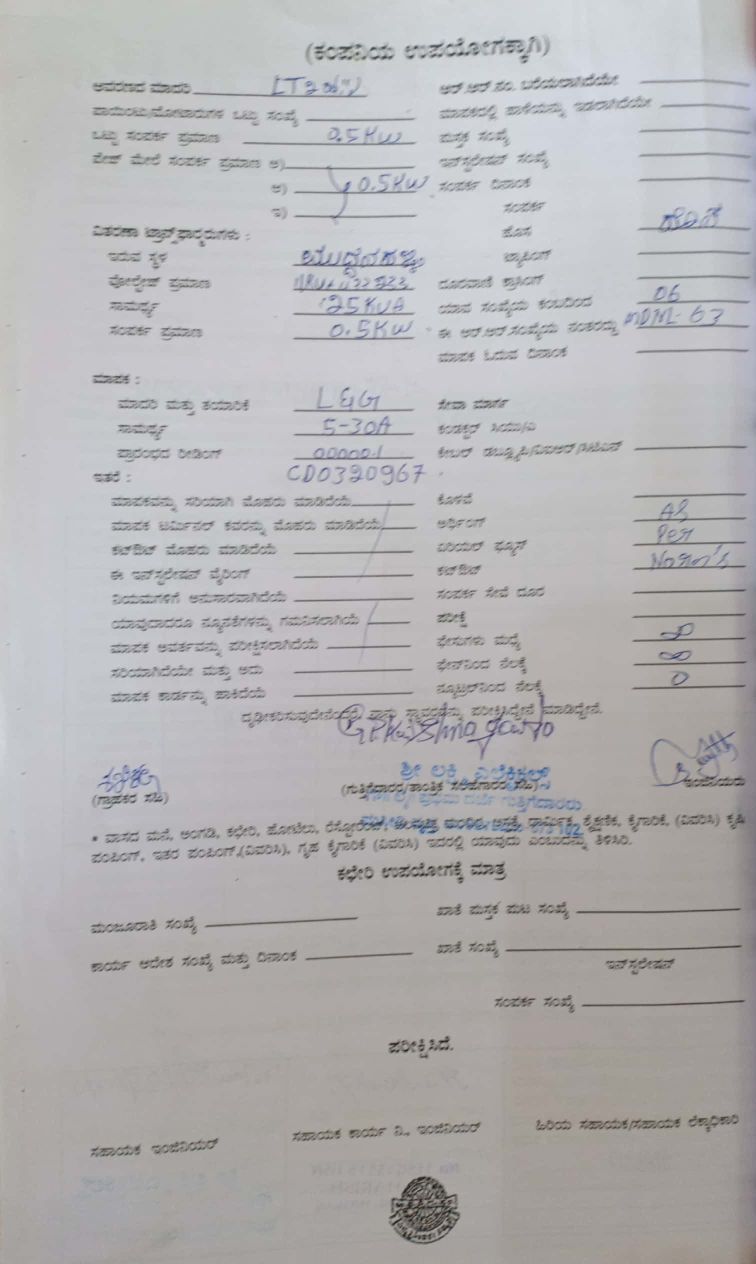 (ಕಂಪನಿಯ ಉಪಯೋಗಕ್ಕಾಗಿ)
ಆವರಣದ ಮಾದರಿ
ಆರ್.ಆರ್.ನಂ. ಬರೆಯಲಾಗಿದೆಯೇ
ಪಾಯಿಂಟು/ಮೋಟಾರುಗಳ ಒಟ್ಟು ಸಂಖ್ಯೆ
ಮಾಪಕದಲ್ಲಿ ಹಾಳೆಯನ್ನು ಇಡಲಾಗಿದೆಯೇ
ಒಟ್ಟು ಸಂಪರ್ಕ ಪ್ರಮಾಣ 0.5KW
ಪುಸ್ತಕ ಸಂಖ್ಯೆ
ಪೇಜ್ ಮೇಲೆ ಸಂಪರ್ಕ ಪ್ರಮಾಣ ಅ)
ಇನ್‌ಸ್ಟಲೇಷನ್ ಸಂಖ್ಯೆ
ಆ) 0.5KW
ಸಂಪರ್ಕ ದಿನಾಂಕ
ಇ)
ಸಂಪರ್ಕ
ವಿತರಣಾ ಟ್ರಾನ್ಸ್‌ಫಾರ್ಮರುಗಳು :
ಹೊಸ ಹೊಸ
ಇರುವ ಸ್ಥಳ
ಟ್ಯಾಪಿಂಗ್
ವೋಲ್ಟೇಜ್ ಪ್ರಮಾಣ
ದೂರವಾಣಿ ಕ್ರಾಸಿಂಗ್
ಸಾಮರ್ಥ್ಯ 25KVA
ಯಾವ ಸಂಖ್ಯೆಯ ಕಂಬದಿಂದ 06
ಸಂಪರ್ಕ ಪ್ರಮಾಣ 0.5KW
ಈ ಆರ್.ಆರ್.ಸಂಖ್ಯೆಯ ನಂತರದ್ದು MDML-63
ಮಾಪಕ ಓದುವ ದಿನಾಂಕ
ಮಾಪಕ :
ಮಾದರಿ ಮತ್ತು ತಯಾರಿಕೆ L&G
ಸೇವಾ ಮಾರ್ಗ
ಸಾಮರ್ಥ್ಯ 5-30A
ಕಂಡಕ್ಟರ್ ಸಿಯು/ಎ
ಪ್ರಾರಂಭದ ರೀಡಿಂಗ್ 00000.1
ಕೇಬಲ್ ಡಬ್ಲ್ಯೂಪಿ/ವಿಐಆರ್/ಸಿಟಿಎಸ್
ಇತರೆ : CD0320967.
ಮಾಪಕವನ್ನು ಸರಿಯಾಗಿ ಮೊಹರು ಮಾಡಿದೆಯೆ
ಕೊಳವೆ
ಮಾಪಕ ಟರ್ಮಿನಲ್ ಕವರನ್ನು ಮೊಹರು ಮಾಡಿದೆಯೆ
ಅರ್ಥಿಂಗ್ As
ಕಟ್‌ಔಟ್ ಮೊಹರು ಮಾಡಿದೆಯೆ
ಏರಿಯಲ್ ಫ್ಯೂಸ್ Per
ಈ ಇನ್‌ಸ್ಟಲೇಷನ್ ವೈರಿಂಗ್
ಕಟ್‌ಔಟ್ Norm's
ನಿಯಮಗಳಿಗೆ ಅನುಸಾರವಾಗಿದೆಯೆ
ಸಂಪರ್ಕ ಸೇವೆ ದೂರ
ಯಾವುದಾದರೂ ನ್ಯೂನತೆಗಳನ್ನು ಗಮನಿಸಲಾಗಿಯೆ
ಪರೀಕ್ಷೆ
ಮಾಪಕ ಆವರ್ತವನ್ನು ಪರೀಕ್ಷಿಸಲಾಗಿದೆಯೆ
ಫೇಸುಗಳು ಮಧ್ಯೆ ∞
ಸರಿಯಾಗಿದೆಯೇ ಮತ್ತು ಅದು
ಫೇಸ್‌ನಿಂದ ನೆಲಕ್ಕೆ ∞
ಮಾಪಕ ಕಾರ್ಡನ್ನು ಹಾಕಿದೆಯೆ
ನ್ಯೂಟ್ರಲ್‌ನಿಂದ ನೆಲಕ್ಕೆ 0
ದೃಢೀಕರಿಸುವುದೇನೆಂದರೆ, ನಾನು ಸ್ಥಾವರವನ್ನು ಪರೀಕ್ಷಿಸಿದ್ದೇನೆ ಮಾಡಿದ್ದೇನೆ.
ಶ್ರೀ ಲಕ್ಷ್ಮಿ ಎಲೆಕ್ಟ್ರಿಕಲ್ಸ್
(ಗ್ರಾಹಕರ ಸಹಿ)
(ಗುತ್ತಿಗೆದಾರರ/ತಾಂತ್ರಿಕ ಸಲಹೆಗಾರರ ಸಹಿ)
ಇಂಜಿನಿಯರು
ಪ್ರಥಮ ದರ್ಜೆ ಗುತ್ತಿಗೆದಾರರು
* ವಾಸದ ಮನೆ, ಅಂಗಡಿ, ಕಛೇರಿ, ಹೋಟೆಲು, ರೆಸ್ಟೋರೆಂಟ್, ಮಂದಿರ, ಆಸ್ಪತ್ರೆ, ಧಾರ್ಮಿಕ, ಶೈಕ್ಷಣಿಕ, ಕೈಗಾರಿಕೆ, (ವಿವರಿಸಿ) ಕೃಷಿ
ಪಂಪಿಂಗ್, ಇತರ ಪಂಪಿಂಗ್,(ವಿವರಿಸಿ), ಗೃಹ ಕೈಗಾರಿಕೆ (ವಿವರಿಸಿ) ಇದರಲ್ಲಿ ಯಾವುದು ಎಂಬುದನ್ನು ತಿಳಿಸಿರಿ.
ಕಛೇರಿ ಉಪಯೋಗಕ್ಕೆ ಮಾತ್ರ
ಮಂಜೂರಾತಿ ಸಂಖ್ಯೆ
ಖಾತೆ ಪುಸ್ತಕ ಪುಟ ಸಂಖ್ಯೆ
ಕಾರ್ಯ ಆದೇಶ ಸಂಖ್ಯೆ ಮತ್ತು ದಿನಾಂಕ
ಖಾತೆ ಸಂಖ್ಯೆ
ಇನ್‌ಸ್ಟಲೇಷನ್
ಸಂಪರ್ಕ ಸಂಖ್ಯೆ
ಪರೀಕ್ಷಿಸಿದೆ.
ಸಹಾಯಕ ಇಂಜಿನಿಯರ್
ಸಹಾಯಕ ಕಾರ್ಯ ನಿ., ಇಂಜಿನಿಯರ್
ಹಿರಿಯ ಸಹಾಯಕ/ಸಹಾಯಕ ಲೆಕ್ಕಾಧಿಕಾರಿ